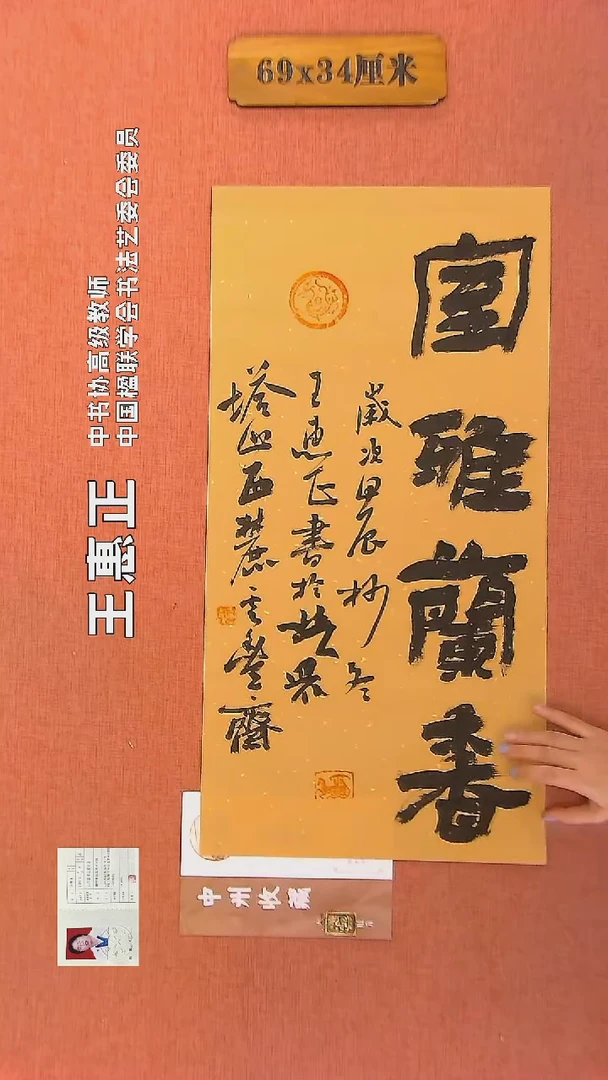 69x34厘米
室雅蘭香
歲次甲辰杪冬
王惠正書於
塔山西麓齋
中书协高级教师
中国楹联学会书法艺委会委员
王惠正
中州收藏